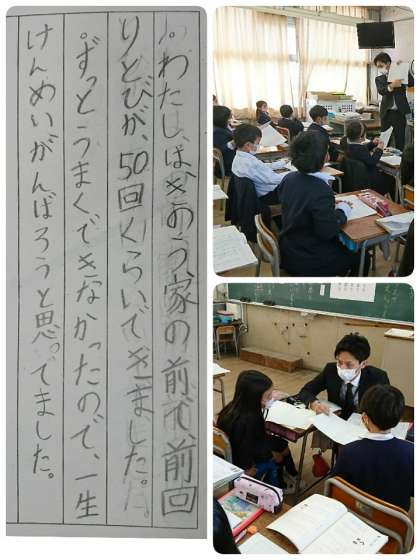 。わたしはきおう家の前で、前回
りとびが、50回くらいできました。
。ずっとうまくできなかったので、一生
けんめいがんばろうと思ってました。